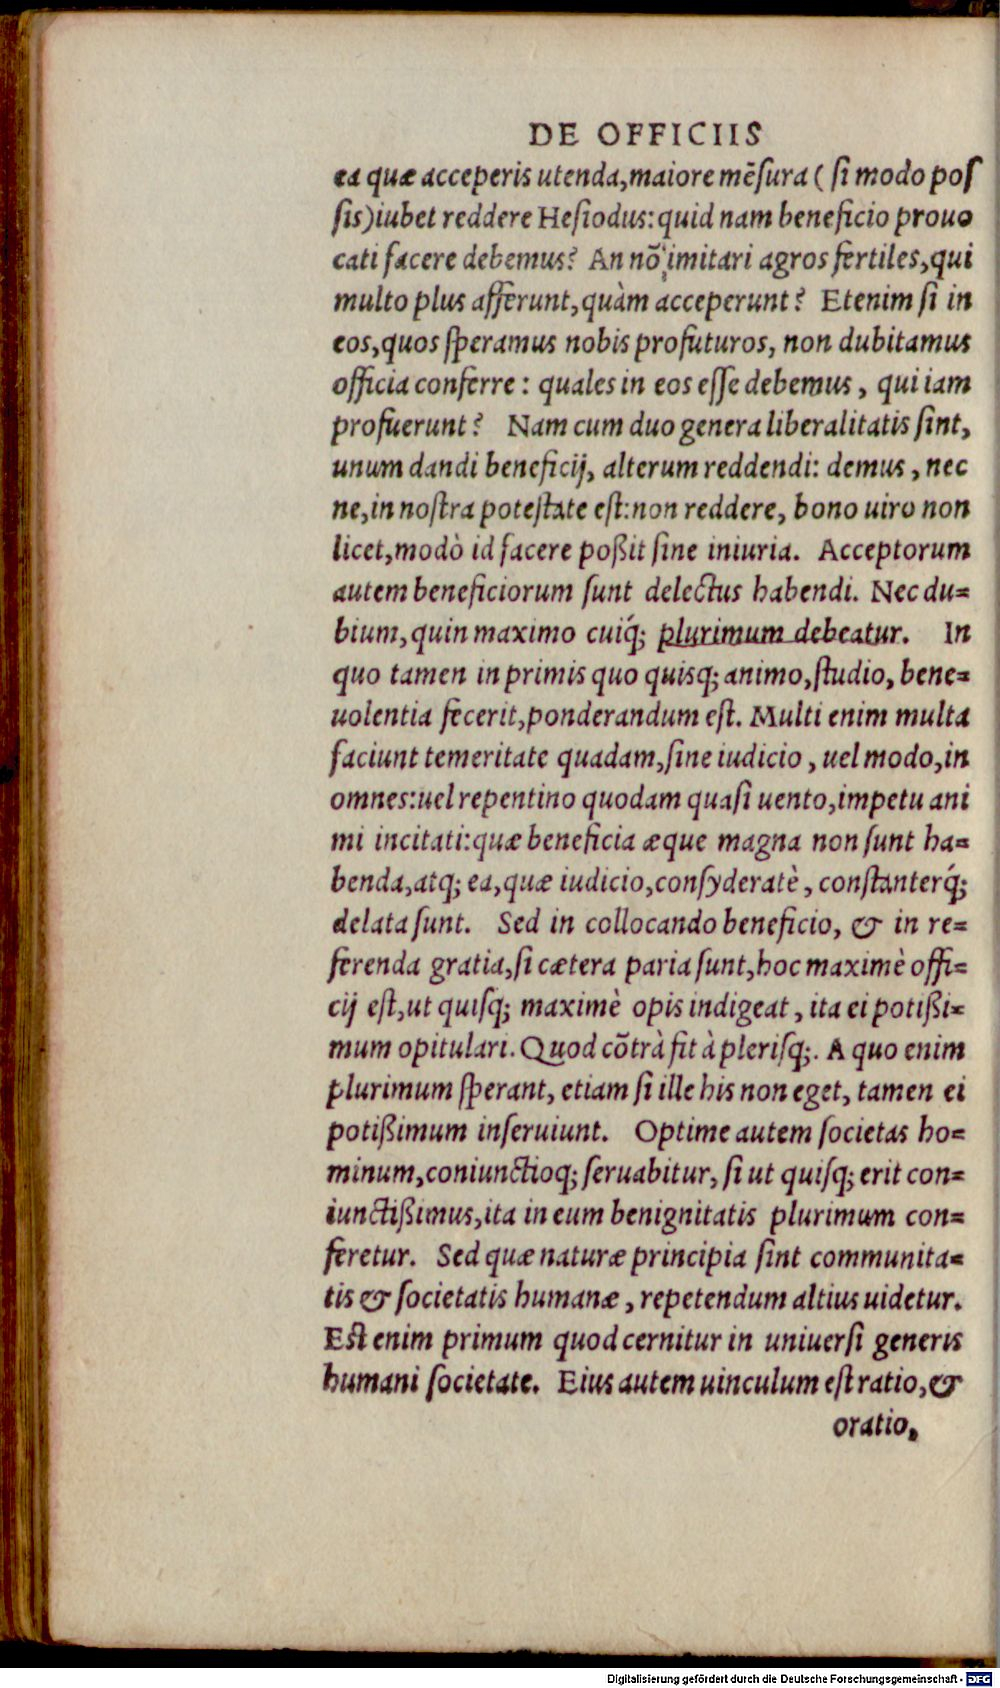 DE OFFICIIS
ea quæ acceperis utenda,maiore mẽsura ( si modo pos
sis)iubet reddere Hesiodus:quid nam beneficio prouo
cati facere debemus? An nõ imitari agros fertiles,qui
multo plus afferunt,quàm acceperunt? Etenim si in
eos,quos speramus nobis profuturos, non dubitamus
officia conferre : quales in eos esse debemus, qui iam
profuerunt? Nam cum duo genera liberalitatis sint,
unum dandi beneficij, alterum reddendi: demus, nec
ne,in nostra potestate est:non reddere, bono uiro non
licet,modò id facere poßit sine iniuria. Acceptorum
autem beneficiorum sunt delectus habendi. Nec du=
bium,quin maximo cuiq́; plurimum debeatur. In
quo tamen in primis quo quisq; animo,studio, bene=
uolentia fecerit,ponderandum est. Multi enim multa
faciunt temeritate quadam,sine iudicio, uel modo,in
omnes:uel repentino quodam quasi uento,impetu ani
mi incitati:quæ beneficia æque magna non sunt ha=
benda,atq; ea,quæ iudicio,consyderatè, constanterq́;
delata sunt. Sed in collocando beneficio, & in re=
ferenda gratia,si cætera paria sunt,hoc maximè offi=
cij est,ut quisq; maximè opis indigeat, ita ei potißi=
mum opitulari. Quod cõtrà fit à plerisq;. A quo enim
plurimum sperant, etiam si ille his non eget, tamen ei
potißimum inseruiunt. Optime autem societas ho=
minum,coniunctioq; seruabitur, si ut quisq; erit con=
iunctißimus,ita in eum benignitatis plurimum con=
feretur. Sed quæ naturæ principia sint communita=
tis & societatis humanæ, repetendum altius uidetur.
Est enim primum quod cernitur in uniuersi generis
humani societate. Eius autem uinculum est ratio,&
oratio,
Digitalisierung gefördert durch die Deutsche Forschungsgemeinschaft - DFG